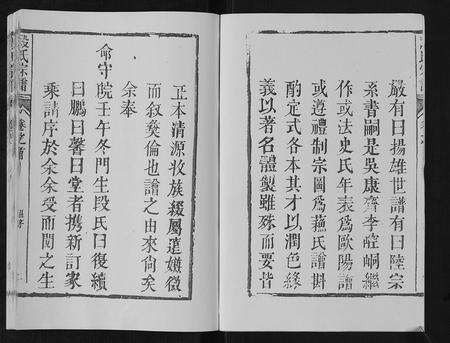 嚴有曰揚雄世譜有曰陸宗
系書嗣是吳康齋李崆峒繼
作或法史氏年表爲歐陽譜
或遵禮制宗圖爲蘓氏譜斟
酌定式各本其才以潤色終
義以著名體製雖殊而要皆
正本清源收族綴屬徵
而敘彝倫也譜之由來尚矣
余奉
命守皖壬午冬門生段氏曰復績
曰鵬曰馨曰堂者攜新訂家
乘請序於余余受而閱之生
段氏宗譜 卷之首